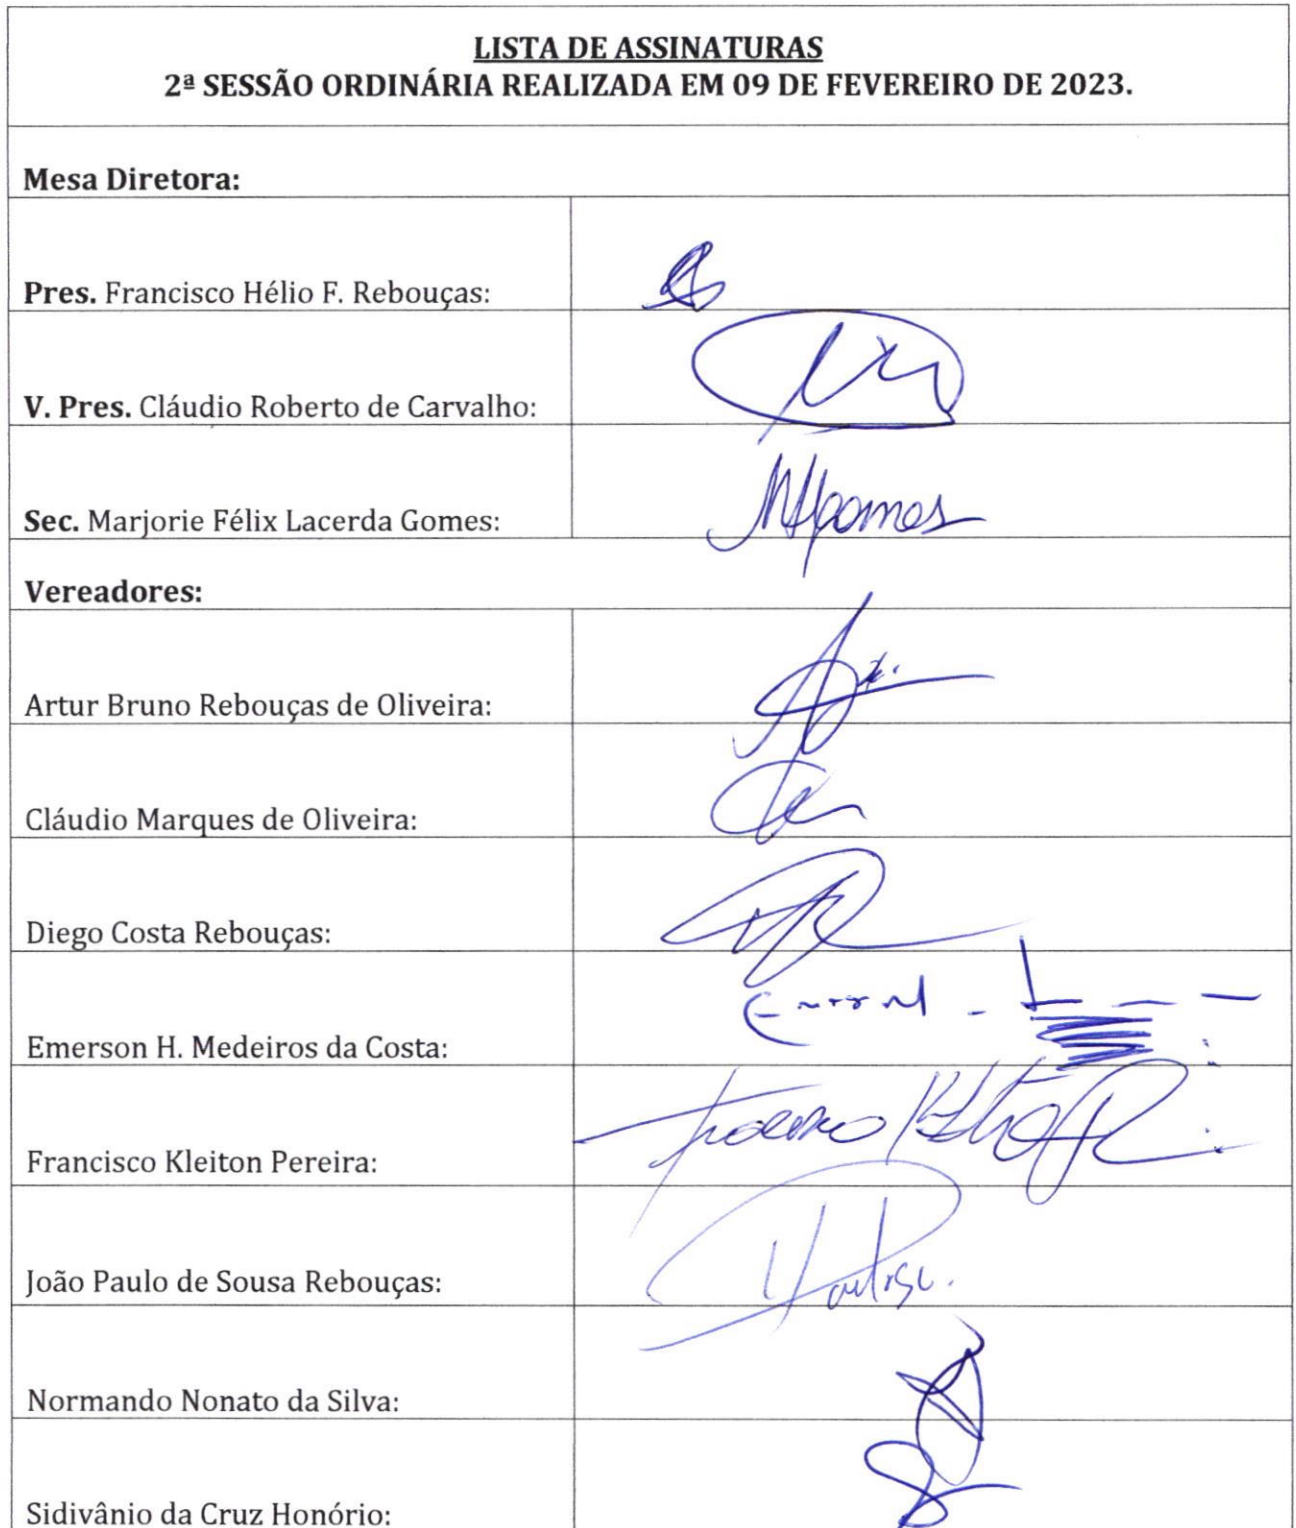 LISTA DE ASSINATURAS
2ª SESSÃO ORDINÁRIA REALIZADA EM 09 DE FEVEREIRO DE 2023.
Mesa Diretora:
Pres. Francisco Hélio F. Rebouças:
V. Pres. Cláudio Roberto de Carvalho:
Sec. Marjorie Félix Lacerda Gomes:
Vereadores:
Artur Bruno Rebouças de Oliveira:
Cláudio Marques de Oliveira:
Diego Costa Rebouças:
Emerson H. Medeiros da Costa:
Francisco Kleiton Pereira:
João Paulo de Sousa Rebouças:
Normando Nonato da Silva:
Sidivânio da Cruz Honório: